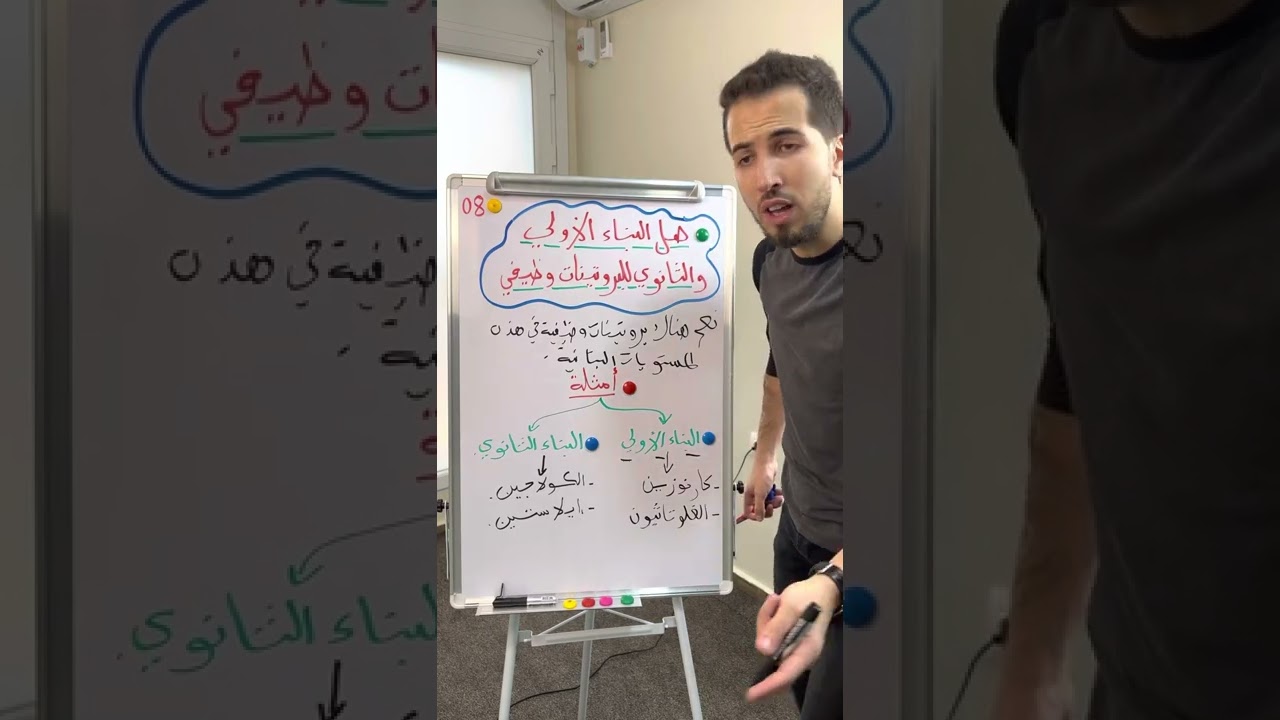 08
هل البناء الأولي
والثانوي للبروتينات وظيفي
نعم هناك بروتينات وظيفية في هذه
المستويات البنائية.
أمثلة
البناء الأولي
- كارنوزين
- الغلوتاثيون
البناء الثانوي
- الكولاجين.
- ايلاستين.